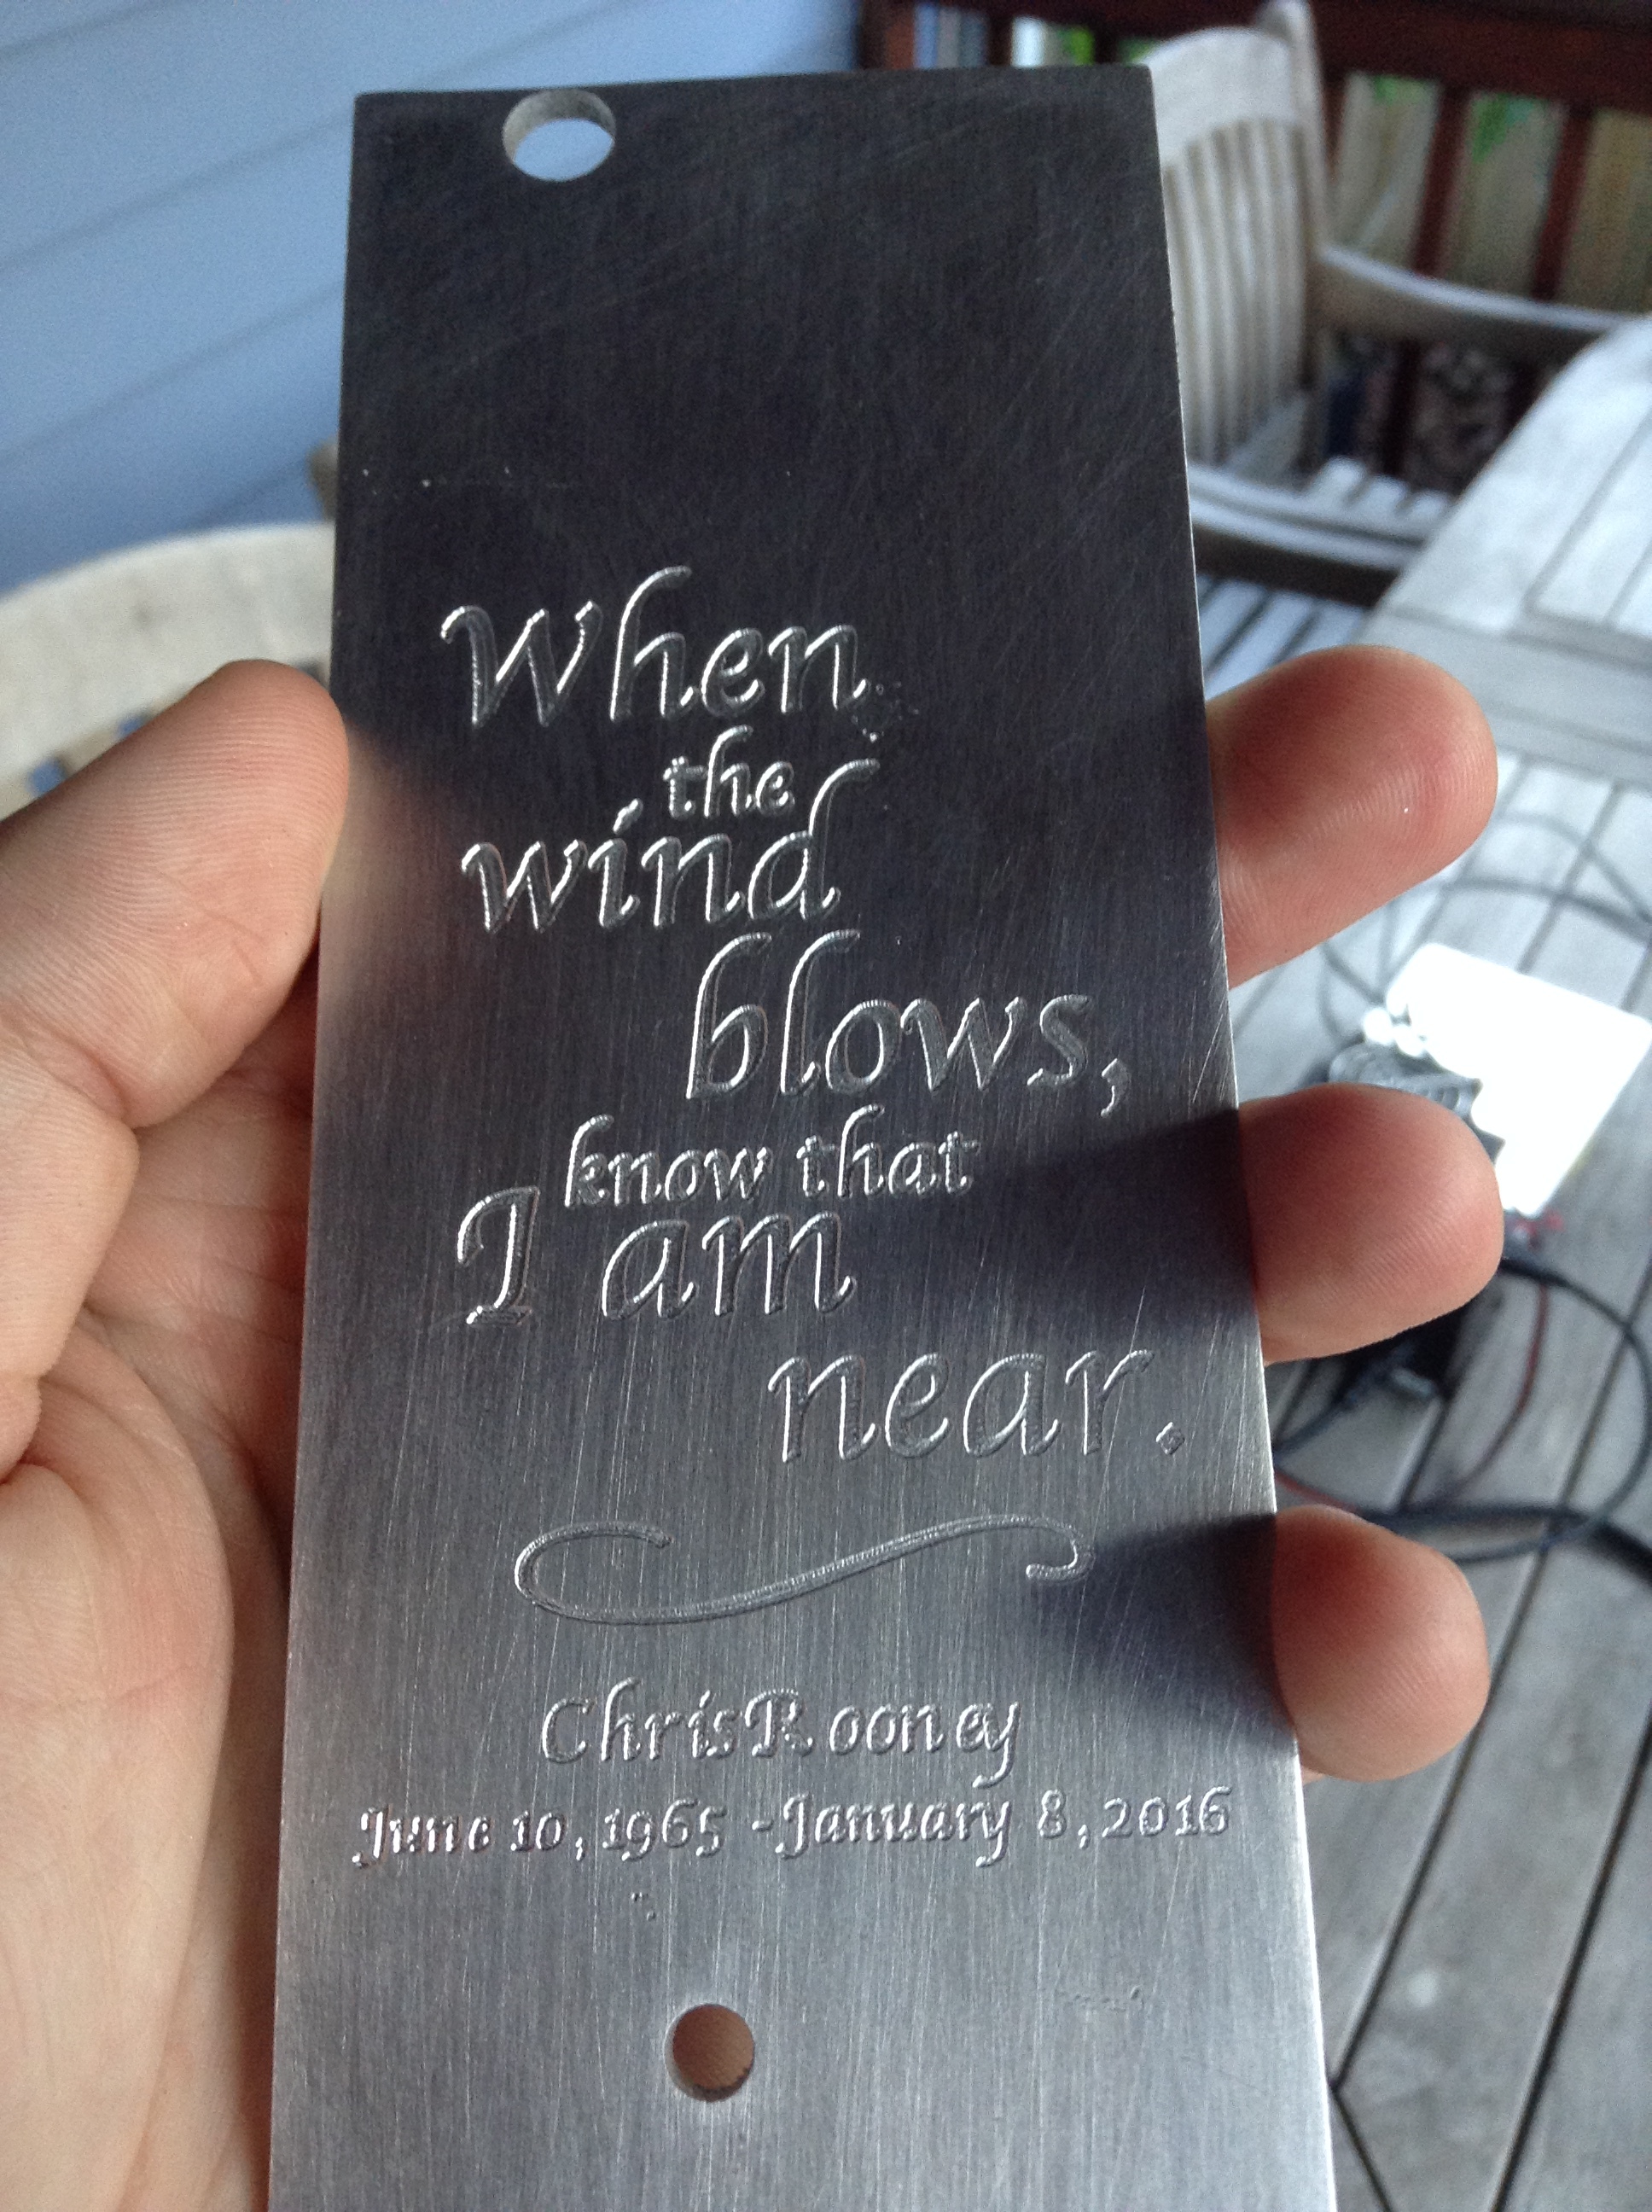 When
the
wind
blows,
know that
I am
near.
ChrisRooney
June 10, 1965 -January 8, 2016